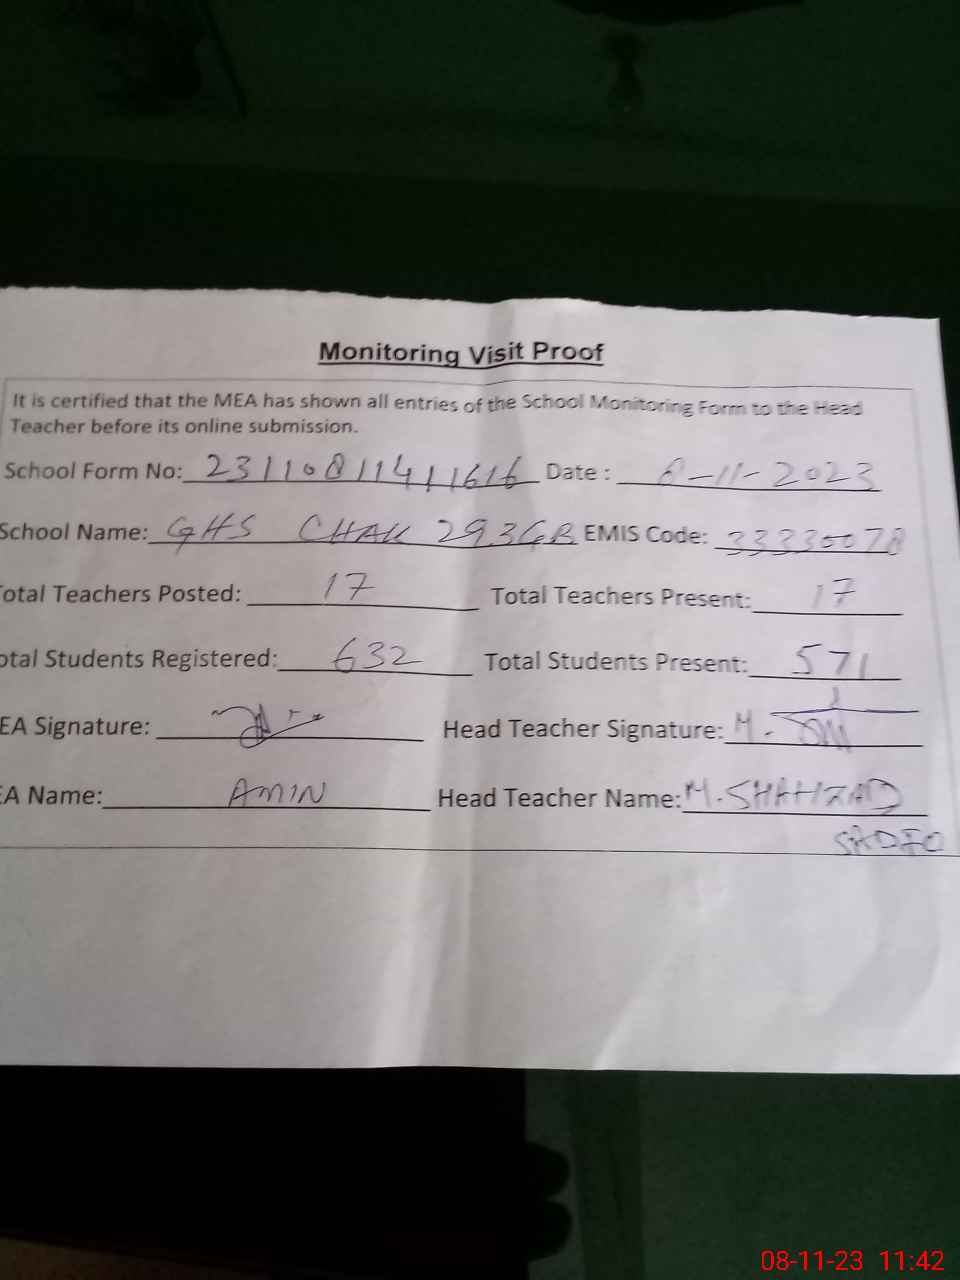 Monitoring Visit Proof
It is certified that the MEA has shown all entries of the School Monitoring Form to the Head
Teacher before its online submission.
School Form No: 23110811411616 Date : 8-11-2023
School Name: GHS CHAK 293GB EMIS Code: 33330078
otal Teachers Posted: 17 Total Teachers Present: 17
otal Students Registered: 632 Total Students Present: 571
EA Signature: Head Teacher Signature:
EA Name: AMIN Head Teacher Name: M.SHAHZAD
08-11-23 11:42